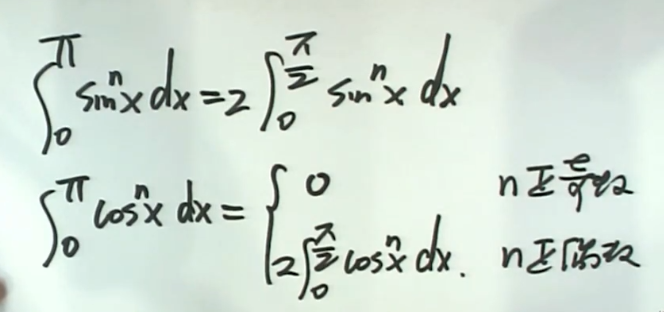 ∫₀^π sinⁿx dx = 2 ∫₀^(π/2) sinⁿx dx
∫₀^π cosⁿx dx = { 0 n正奇数
2∫₀^(π/2) cosⁿx dx. n正偶数